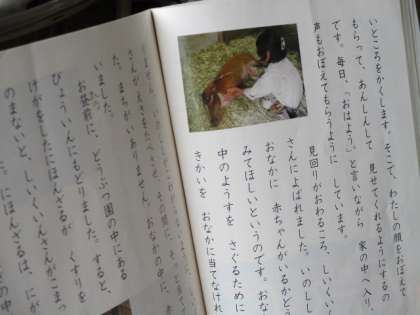 いところをかくします。そこで、わたしの顔をおぼえて
もらって、あんしんして 見せてくれるようにするの
です。毎日、「おはよう」と言いながら 家の中へ入り、
声もおぼえてもらうように しています。
見回りがおわるころ、しいくい
さんによばれました。いのしし
おなかに 赤ちゃんがいるかどう
みてほしいというのです。おな
中のようすを さぐるために
きかいを おなかに当てなけれ
ません。いのししがこわがらないように、
さんがえさをたべさせ、その間に、
た。まちがいありません。おなかの中に、
いました。
お昼前に、どうぶつ園の中にある
びょういんにもどりました。すると、
けがをしたにほんざるが くすりを
のまないと、しいくいんさんがこまっ
にほんざるは、にが
の中